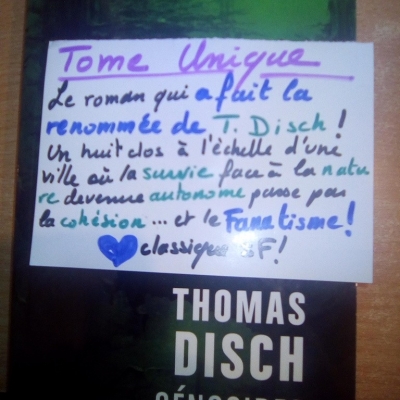 Tome Unique
Le roman qui a fait la
renommée de T. Disch !
Un huit clos à l'échelle d'une
ville où la survie face à la natu
re devenue autonome passe par
la cohésion ... et le Fanatisme !
classique SF !
THOMAS
DISCH
GÉNOCIDES